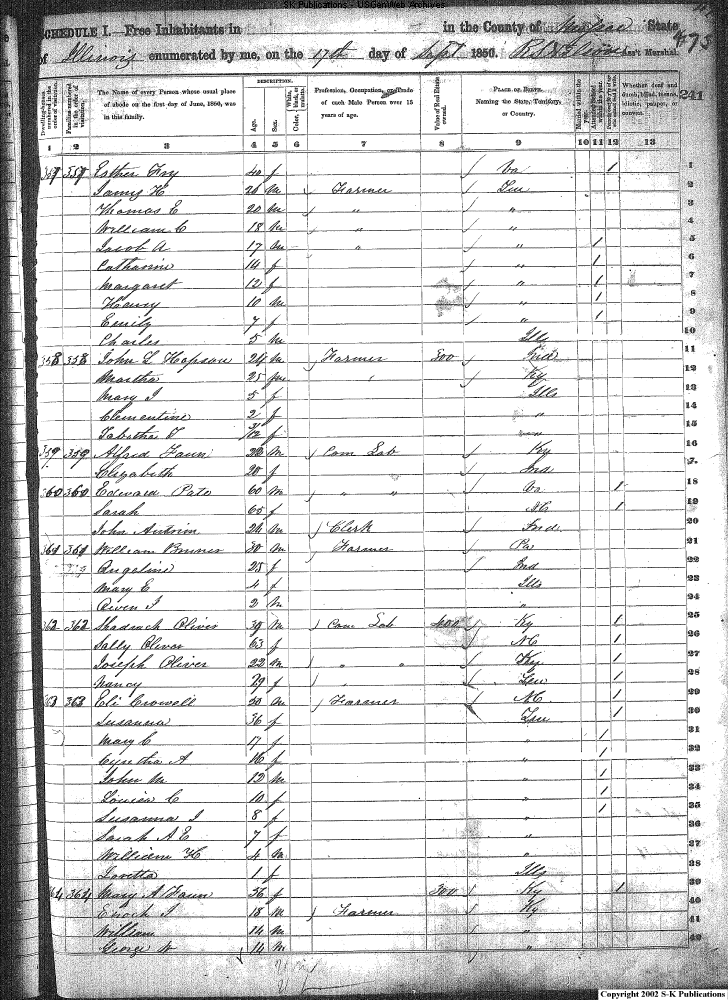 SK Publications - USGenWeb Archives
SCHEDULE I.—Free Inhabitants in in the County of State
of Illinois enumerated by me, on the 17th day of Sept 1850. Ass't Marshal.
475
241
Dwelling-houses numbered in the order of visitation.
Families numbered in the order of visitation.
The Name of every Person whose usual place of abode on the first day of June, 1850, was in this family.
DESCRIPTION.
Age.
Sex.
Color, White, black, or mulatto.
Profession, Occupation, or Trade of each Male Person over 15 years of age.
Value of Real Estate owned.
PLACE OF BIRTH. Naming the State, Territory, or Country.
Married within the year.
Whether deaf and dumb, blind, insane, idiotic, pauper, or convict.
1 2 3 4 5 6 7 8 9 10 11 12 13
Esther 40 f Va / 1
James H 26 m Farmer Ten 2
Thomas E 20 m " " 3
William C 18 m " " 4
Jacob A 17 m " " / 5
Catharine 14 f " / 6
Margaret 12 f " / 7
Harvey 10 m " / 8
Emily 7 f " / 9
Charles 5 m Ills 10
358 358 John L Hopson 24 m Farmer 800 Ind 11
Martha 25 Ky 12
Mary J 5 f Ills 13
Clementine 2 f " 14
Tabitha T /12 f 15
359 359 Alfred Faun 22 m Com Lab Ky 16
Elizabeth 20 f Ind
360 360 Edward Pate 60 m " " Va / 18
Sarah 65 f / 19
John Antrim 24 m Clerk Ind 20
361 361 William 30 m Farmer Pa
Angeline 25 f Ind
Mary E 4 f Ills
Owen J 2 m "
362 362 Shadrach Oliver 39 m Com Lab 400 Ky / 25
Sally Oliver 63 f NC / 26
Joseph Oliver 22 m " " Ky / 27
Nancy 29 f Ten / 28
363 363 Eli Crowell 30 m Farmer NC / 29
Susanna 36 f Ten / 30
Mary C 17 f " / 31
Cyntha A 16 f " /
John M 12 m " /
Louisa C 10 f " /
Susanna J 8 f " /
Sarah A E 7 f "
William H 4 m "
Loretta 1 f Ills
364 364 Mary A Faun 36 f 300 Ky /
Enoch J 18 m Farmer Ky
William 14 m "
George W 14 m "
Copyright 2002 S-K Publications